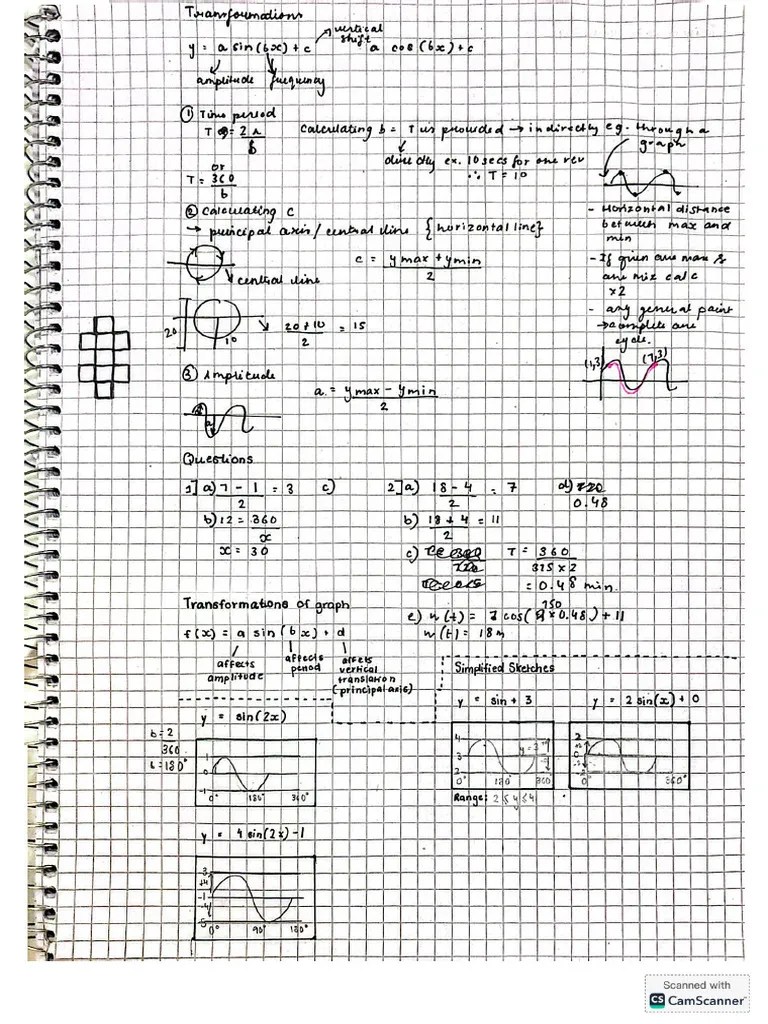 Transformations
y = a sin(bx) + c
vertical shift
a cos(bx)+c
amplitude
frequency
① Time period
T = 2π
b
or
T = 360
b
Calculating b = T is provided → indirectly eg. through a graph
directly ex. 10 secs for one rev
∴ T = 10
- Horizontal distance
between max and
min
- If given one max &
one mix calc
x2
- any general point
→ complete one
cycle.
(1,3)
(7,3)
② Calculating C
→ principal axis / central line {horizontal line}
c = ymax + ymin
2
central line
20
10
20 + 10 = 15
2
③ Amplitude
a = ymax - ymin
2
a
Questions
1] a) 7 - 1 = 3
2
c)
b) 12 = 360
x
x = 30
2] a) 18 - 4 = 7
2
b) 18 + 4 = 11
2
c)
T = 360
375 x 2
= 0.48 min.
d)
0.48
e)
x 0.48) + 11
= 18m
Transformations of graph
f(x) = a sin(bx) + d
affects
amplitude
affects
period
affets
vertical
translation
(principal axis)
y = sin(2x)
b = 2
360
b = 180°
1
0
-1
0°
180°
360°
y = 4 sin(2x) - 1
3
+4
-1
-4
-5
0°
90°
180°
Simplified Sketches
y = sin + 3
4
3
2
0
180
360
Range: 2 ≤ y ≤ 4
y = 2 sin(x) + 0
2
0
0°
360°
Scanned with
CS CamScanner